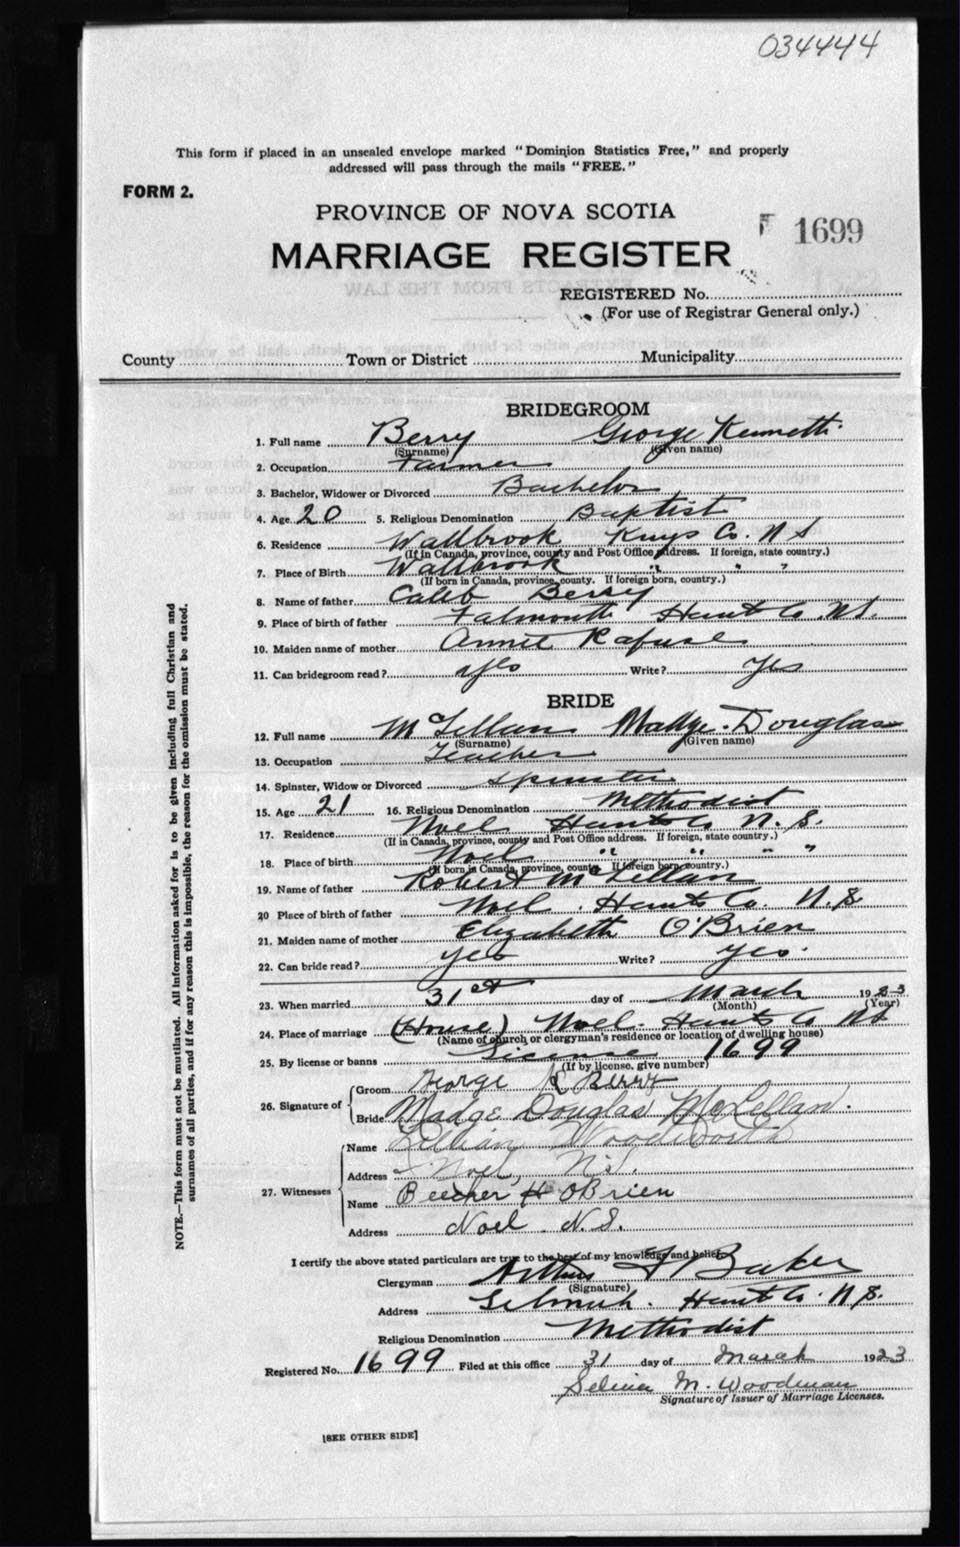 034444
This form if placed in an unsealed envelope marked "Dominion Statistics Free," and properly
addressed will pass through the mails "FREE."
FORM 2.
PROVINCE OF NOVA SCOTIA
1699
MARRIAGE REGISTER
REGISTERED No.
(For use of Registrar General only.)
County Town or District Municipality
BRIDEGROOM
1. Full name Berry George Kenneth
(Surname) (Given name)
2. Occupation Farmer
3. Bachelor, Widower or Divorced Bachelor
4. Age 20 5. Religious Denomination Baptist
6. Residence Wallbrook Kings Co. N S
(If in Canada, province, county and Post Office address. If foreign, state country.)
7. Place of Birth Wallbrook " " "
(If born in Canada, province, county. If foreign born, country.)
8. Name of father Caleb Berry
9. Place of birth of father Falmouth Hants Co. N.S.
10. Maiden name of mother Annie Rafuse
11. Can bridegroom read? yes Write? yes
BRIDE
12. Full name McLellan Madge Douglas
(Surname) (Given name)
13. Occupation Teacher
14. Spinster, Widow or Divorced Spinster
15. Age 21 16. Religious Denomination Methodist
17. Residence Noel Hants Co N. S.
(If in Canada, province, county and Post Office address. If foreign, state country.)
18. Place of birth Noel " " " "
(If born in Canada, province, county. If foreign born, country.)
19. Name of father Robert McLellan
20 Place of birth of father Noel. Hants Co. N.S.
21. Maiden name of mother Elizabeth O'Brien
22. Can bride read? yes Write? yes.
23. When married 31st day of March 1923
(Month) (Year)
24. Place of marriage (House) Noel. Hants Co NS
(Name of church or clergyman's residence or location of dwelling house)
25. By license or banns License 1699
(If by license, give number)
26. Signature of Groom George K Berry
Bride Madge Douglas McLellan.
27. Witnesses Name Lillian Woodworth
Address Noel, N.S.
Name Beecher H OBrien
Address Noel N.S.
I certify the above stated particulars are true to the best of my knowledge and belief.
Clergyman Arthur F Baker
(Signature)
Address Selmah. Hants Co. N.S.
Religious Denomination Methodist
Registered No. 1699 Filed at this office 31 day of March 1923
Selina M. Woodman
Signature of Issuer of Marriage Licenses.
[SEE OTHER SIDE]
NOTE.—This form must not be mutilated. All information asked for is to be given including full Christian and
surnames of all parties, and if for any reason this is impossible, the reason for the omission must be stated.